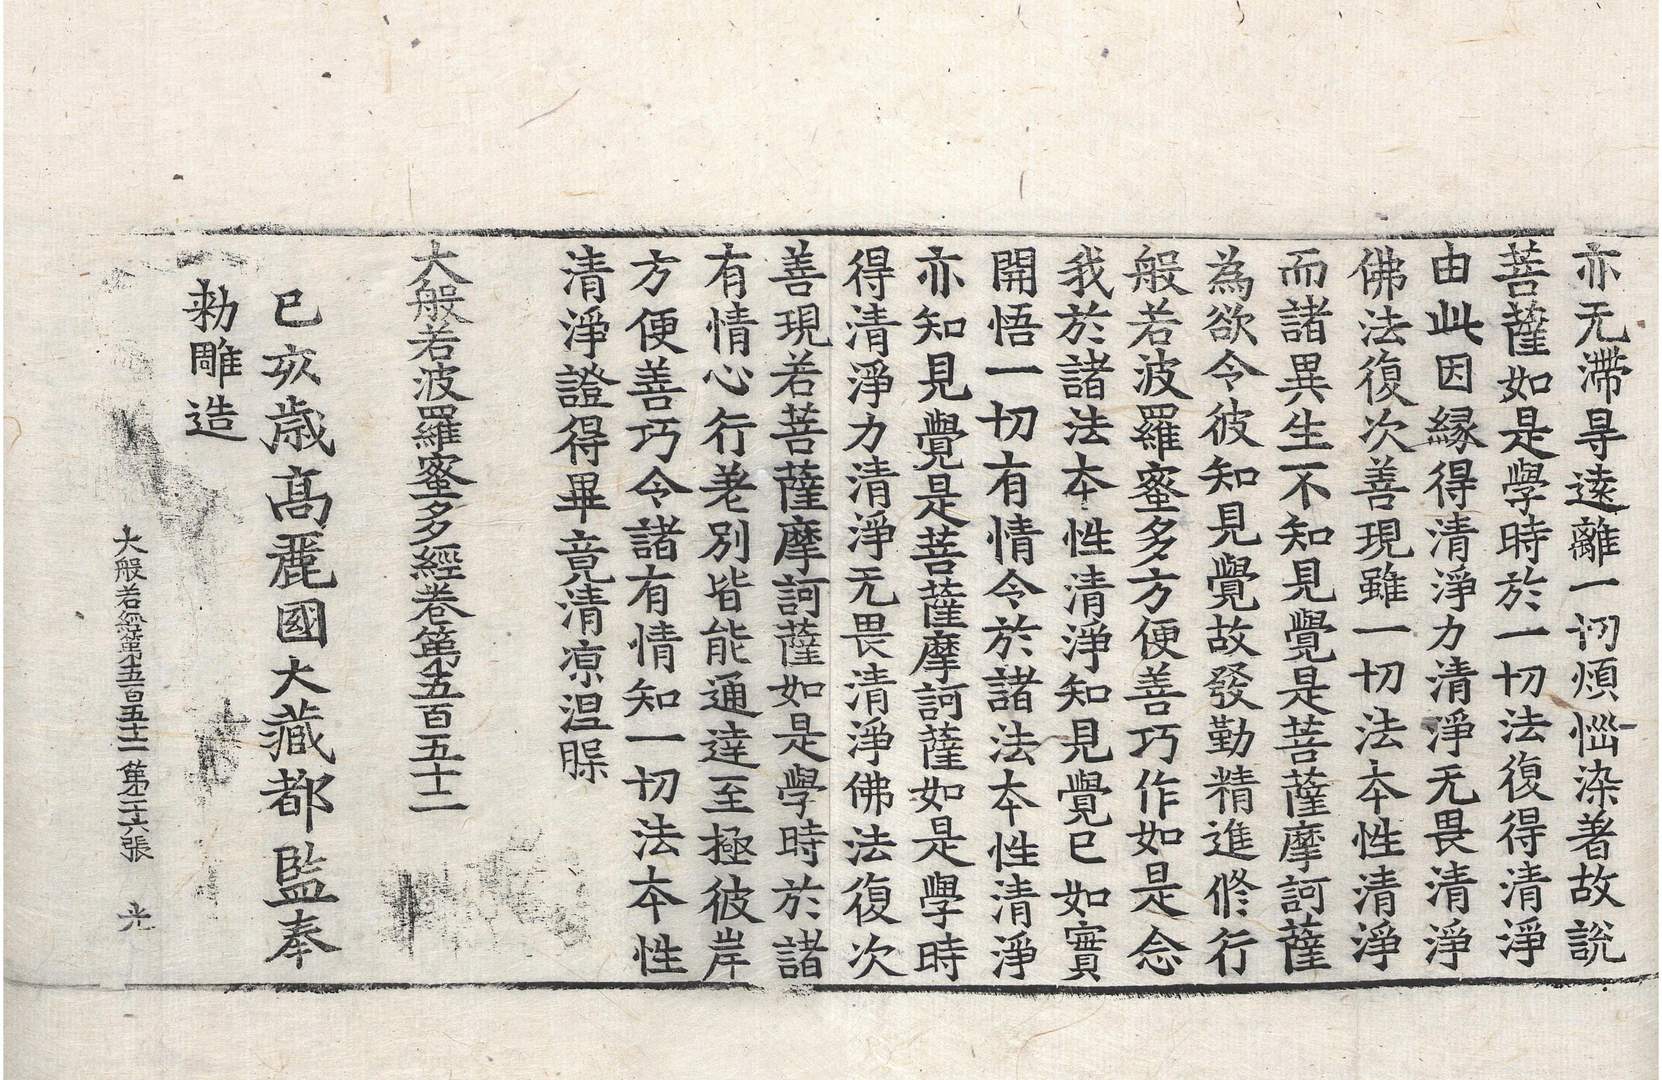 亦无滯㝵遠離一切煩惱染著故說
菩薩如是學時於一切法復得清淨
由此因緣得清淨力清淨无畏清淨
佛法復次善現雖一切法本性清淨
而諸異生不知見覺是菩薩摩訶薩
為欲令彼知見覺故發勤精進修行
般若波羅蜜多方便善巧作如是念
我於諸法本性清淨知見覺已如實
開悟一切有情令於諸法本性清淨
亦知見覺是菩薩摩訶薩如是學時
得清淨力清淨无畏清淨佛法復次
善現若菩薩摩訶薩如是學時於諸
有情心行差別皆能通達至極彼岸
方便善巧令諸有情知一切法本性
清淨證得畢竟清涼涅槃
大般若波羅蜜多經卷第五百五十二
己亥歲高麗國大藏都監奉
勅雕造
大般若經第五百五十二 第二十六張 光